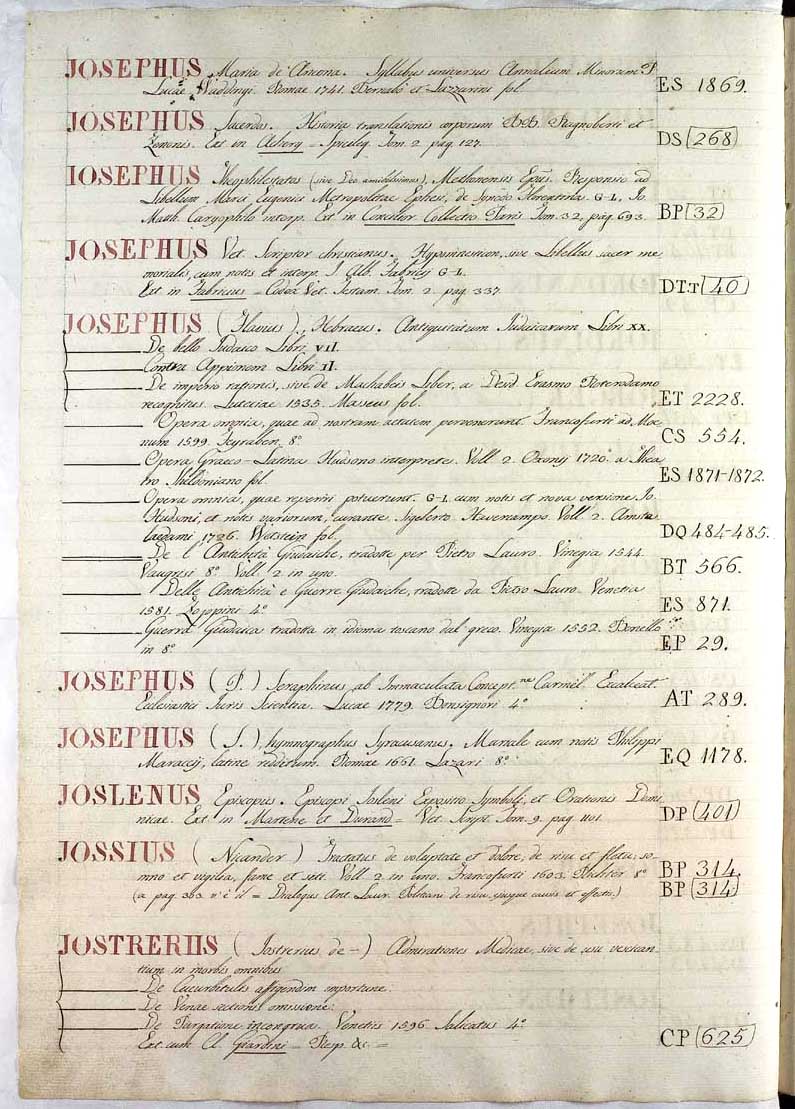 JOSEPHUS Maria de Ancona. Syllabus universus Annalium Minorum P.
Lucae Waddingi. Romae 1741. Bernabò et Lazzarini fol. ES 1869.
JOSEPHUS Sacerdos. Historia translationis corporum BB. Ragnoberti et
Zenonis. Ext in Achery = Spicileg. Tom. 2. pag. 127. DS 268
IOSEPHUS Theophilestatos (sive Deo amicissimus), Methonensis Epus. Responsio ad
Libellum Marci Eugenii Metropolitae Ephesi, de Synodo Florentina. G-L, Io.
Matth. Caryophilo interp. Ext in Concilior. Collectio Paris Tom. 32, pag. 693. BP 32
JOSEPHUS Vet. Scriptor christianus. Hypomnesticon, sive Libellus sacer me
morialis, cum notis et interp. J. Alb. Fabricij G-L.
Ext in Fabricius = Codex Vet. Testam. Tom. 2. pag. 337. DT.T 40
JOSEPHUS (Flavius), Hebraeus. Antiquitatum Judaicarum Libri XX.
De bello Judaico Libri VII.
Contra Appionem Libri II.
De imperio rationis, sive de Machabeis Liber, a Desid. Erasmo Roterodamo
recognitus. Luteciae 1535. Maseus fol. ET 2228.
Opera omnia, quae ad nostram aetatem pervenerunt. Francofurti ad Moe
num 1599. Feyraben. 8° CS 554.
Opera Graeco-Latina Hudsono interprete. Voll. 2. Oxonij 1720. a Thea
tro Sheldoniano fol. ES 1871-1872.
Opera omnia, quae reperiri potuerunt. G-L. cum notis et nova versione Io.
Hudsoni, et notis variorum, curante Sigeberto Havercampo. Voll. 2. Amste
laedami 1726. Wetstein fol. DQ 484-485.
De l'Antichità Giudaiche, tradotte per Pietro Lauro. Vinegia 1544.
Vaugrisi 8° Voll. 2 in uno. BT 566.
Delle Antichità e Guerre Giudaiche, tradotte da Pietro Lauro. Venetia
1581. Zoppini 4° ES 871.
Guerra Giudaica tradotta in idioma toscano dal greco. Vinegia 1552.
in 8° EP 29.
JOSEPHUS (P.) Seraphinus ab Immaculata Concept.ne Carmel. Excalceat.
Ecclesiastici Iuris Scientia. Lucae 1779. Bonsignori 4° AT 289.
JOSEPHUS (S.), hymnographus Syracusanus. Mariale cum notis Philippi
Maraccij, latine redditum. Romae 1661. Lazari 8° EQ 1178.
JOSLENUS Episcopus. Episcopi Iosleni Expositio Symboli, et Orationis Domi
nicae. Ext in Martene et Durand = Vet. Script. Tom. 9. pag. 1101. DP 401
JOSSIUS (Nicander) Tractatus de voluptate et dolore, de risu et fletu, so
mno et vigilia, fame et siti. Voll. 2 in uno. Francofurti 1603. Richter 8° BP 314.
(a pag. 363 v'è il = Dialogus Ant. Laur. Politiani de risu, ejusque causis et effectis.) BP 314
JOSTRERIIS (Jostrerius de-) Admirationes Medicae, sive de usu vesican
tium in morbis omnibus
De Cucurbitulis affigendis importune.
De Venae sectionis omissione.
De Purgatione incongrua. Venetiis 1596. Salicatus 4°
Ext cum Cl. Giardini = Resp. &c. = CP 625